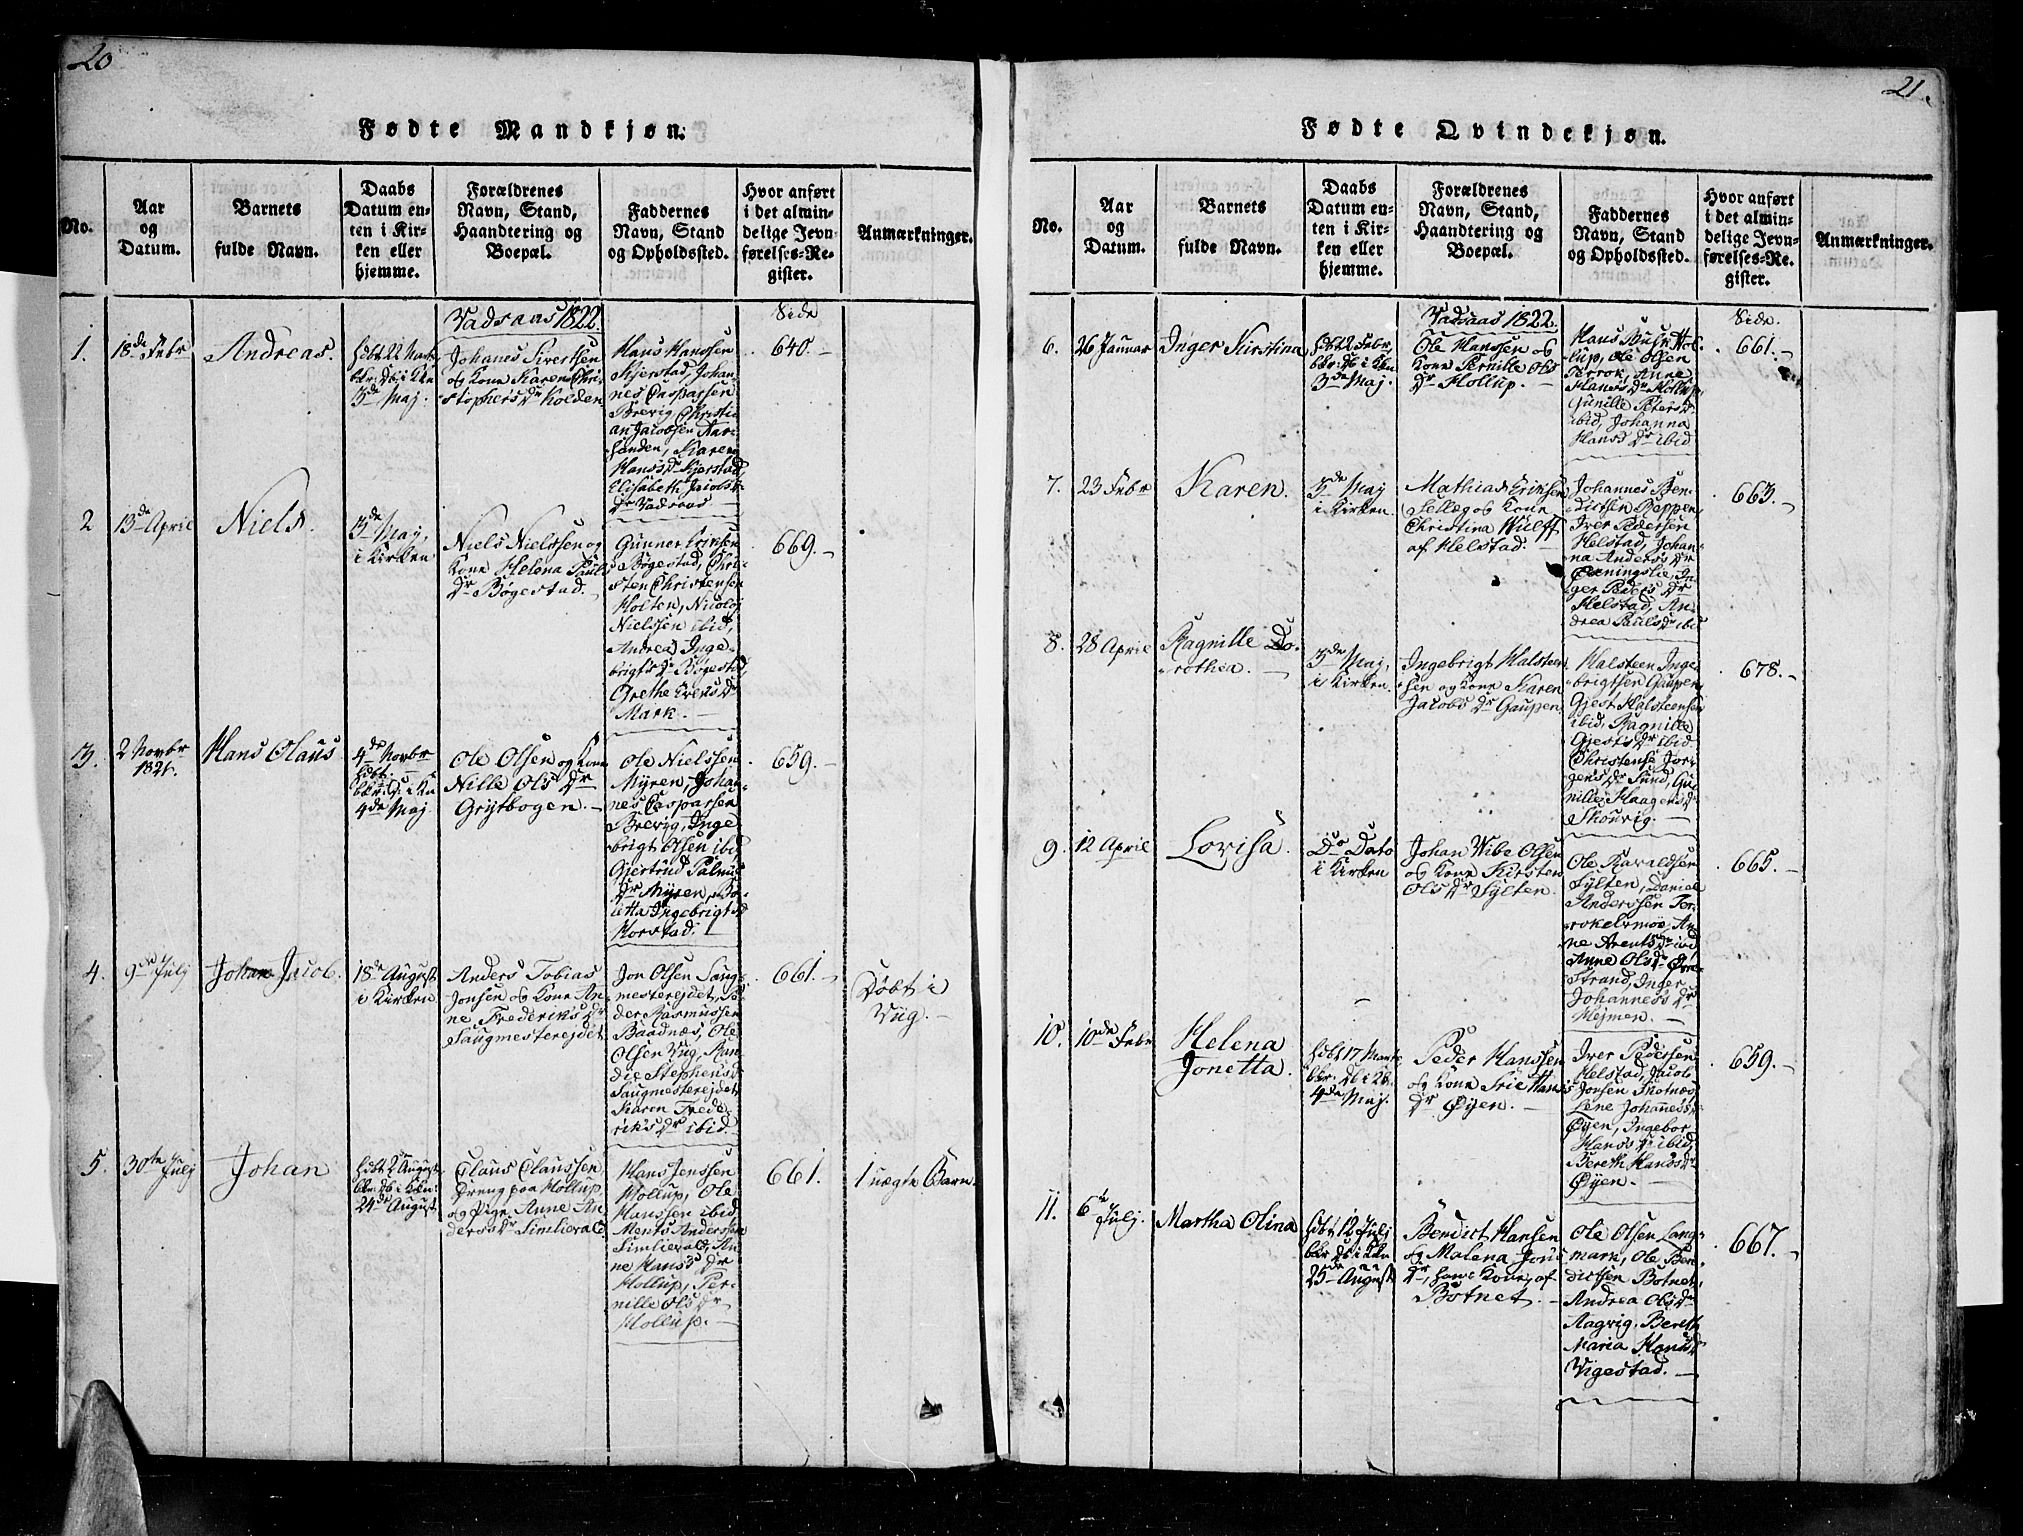 20
Fødte Mandkjøn.
No.
Aar
og
Datum.
Barnets
fulde Navn.
Daabs
Datum en-
ten i Kir-
ken eller
hjemme.
Forældrenes
Navn, Stand,
Haandtering og
Boepæl.
Faddernes
Navn, Stand
og Opholdssted.
Hvor anført
i det almin-
delige Jevn-
førelses-Re-
gister.
Anmærkninger.
Vadsaas 1822.
Side
1.
18de Febr
Andreas.
3de Maj.
Johanes Sivertsen
og Kone Karen Chri-
stophers Dr Holden
Hans Hanssen
Kjerstad, Johan-
nes Casparsen
Brevig, Christi-
an Jacobsen
Karen
Hans Dr Kjerstad,
Elisabeth Jacobs
Dr Vadsaas
640.-
2
13de April
Niels.
3de Maj,
i Kirken
Niels Nielssen og
Kone Helena Pauls
Dr Bøgestad.-
Gunner
Bøgestad, Chri-
sten Christensen
Holten, Nicolaj
Nielssen ibid,
Andrea Inge-
brigts Dr Bøgestad,
Grethe Evens Dr
Mark.-
669.-
3.
2 Novbr
1821.
Hans Olaus
4de Novbr
hbt.
4de Maj
Ole Olsen og Kone
Nille Ols Dr
Grytbogen.-
Ole Nielssen
Myren, Johan-
nes Casparsen
Brevig, Inge-
brigt Olsen ibid
Gjertrud Palms
Dr Myren,
Ingebrigts
Horstad.
659.-
4.
9de Julj
Johan Jacob.
18de August
i Kirken
Anders Tobias
Jonsen og Kone An-
ne Fredriks Dr
Saugmesterejdet
Jon Olsen Saug-
mesterejdet, Pe-
der Rasmussen
Baadnæs, Ole
Olsen Vug, Ran-
die Stephens
Saugmesterejdet
Karen Frede-
riks Dr ibid.
661.-
Døbt i
Vug.-
5.
30te Julj
Johan
hbt 2 August
24de August
Claus Claussen
Dreng paa Hollup,
og Pige Anne An-
ders Dr Simlievald
Hans Jenssen
Hollup, Ole
Hanssen ibid
Ments Andersen
Simlievald, An-
ne Hans Dr
Hollup, Per-
nille Ols Dr
Hollup.-
661.
1 uægte Barn.
21.
Fødte Qvindekjøn.
No.
Aar
og
Datum.
Barnets
fulde Navn.
Daabs
Datum en-
ten i Kir-
ken eller
hjemme.
Forældrenes
Navn, Stand,
Haandtering og
Boepæl.
Faddernes
Navn, Stand
og Opholdssted.
Hvor anført
i det almin-
delige Jevn-
førelses-Re-
gister.
Anmærkninger.
Vadsaas 1822.
Side.
6.
26 Januar
Inger Kirstina
hbt 2 Febr
3de Maj.
Ole Hanssen og
Kone Pernille Ols
Dr Hollup.-
Hans Busk Hol-
lup, Ole Olsen
Terrok, Anne
Hans Dr Hollup,
Gunille Peters Dr
ibid, Johanna
Hans Dr ibid
661.-
7.
23 Febr
Karen.
3de Maj
i Kirken
Mathias Eriksen
Sellæg og Kone
Christina Wulff
af Helstad.-
Johannes Ben-
dictsen Reppen
Iver Pedersen
Helstad, Johan-
na Anders Dr
In-
ger Peders Dr
Helstad, An-
drea Pauls Dr ibid
663.-
8.
28 April
Ragnille Do-
rothea.-
3de Maj,
i Kirken
Ingebrigt Halsteen-
sen og Kone Karen
Jacobs Dr Gaupen.
Halsteen Inge-
brigtsen Gaupen
Gjest Halsteensen
ibid, Ragnille
Gjests Dr ibid
Christense Jor-
gens Dr Sund, Gu-
nille Haagens Dr
Skourig.-
678.-
9.
12 April
Lovisa.
Do Dato
i Kirken
Johan Wibe Olsen
og Kone Kirsten
Ols Dr Sylten.
Ole Haraldsen
Sylten, Daniel
Anderssen Ter-
An-
ne Arents Dr ibid
Anne Ols Dr Øvre-
Strand, Inger
Johannes Dr
Hejmen.-
665.-
10.
10de Febr
Helena
Jonetta.
hbt 17 Marts
4de Maj.
Peder Hanssen
og Kone Hans
Dr Øyen.-
Iver Pedersen
Helstad, Jacob
Jonsen Skotnæs,
Lene Johannes
Øyen, Ingebor
Hans Dr ibid,
Bereth Hans Dr
Øyen.-
659.-
11.
6te Julj.
Martha Olina
hbt 12 Julj
25de August
Bendict Hansen
og Malena Jons
Dr, hans Kone, af
Botnet.-
Ole Olsen Lang-
mark, Ole Ben-
dictsen Botnet,
Andrea Ols Dr
Aagvig, Bereth
Maria Hans Dr
Vigestad.-
667.-